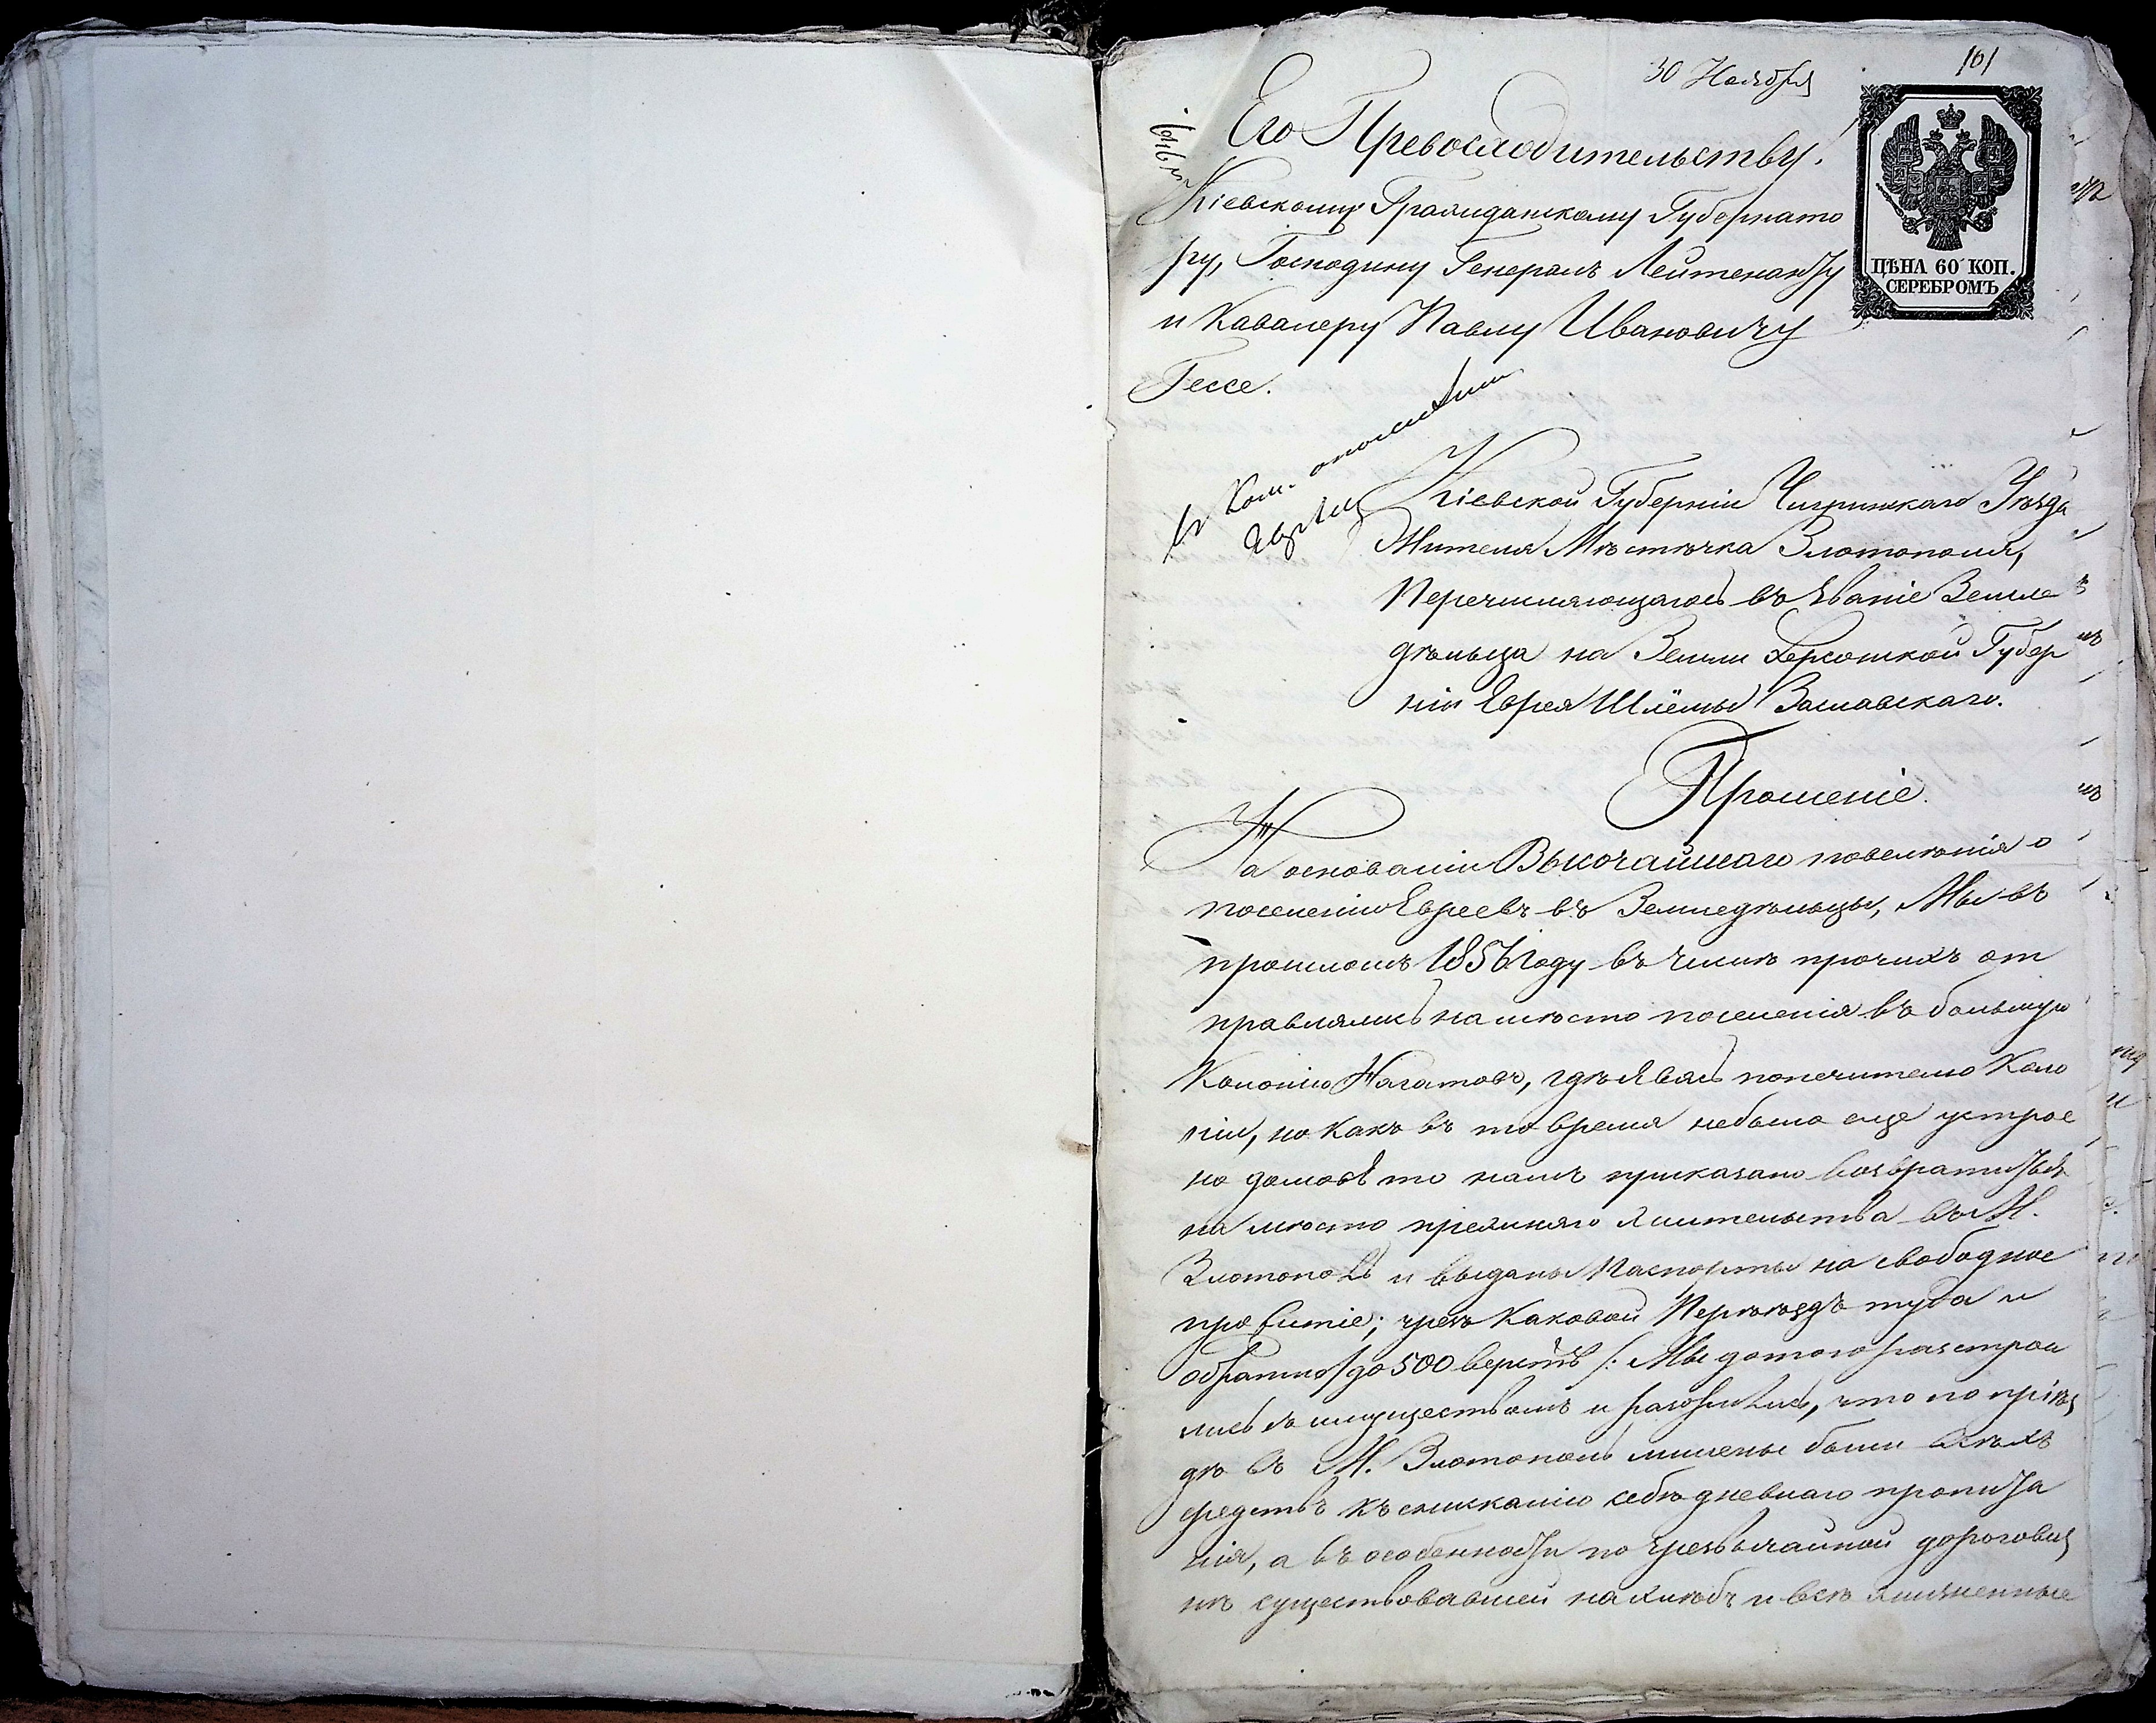 30 Ноября
101
Его Превосходительству.
Кіевскому Гражданскому Губернато
ру, Господину Генералъ Лейтенанту
и Кавалеру Павлу Ивановичу
Гессе.
ЦѢНА 60 КОП.
СЕРЕБРОМЪ
Кіевской Губерніи Чигиринскаго Уѣзда
Жителя Мѣстечка Златополя,
Перечисляющагось въ Званіе Земле
дѣльца на Земли Херсонской Губер
ніи Еврея Шлёмы Заславскаго.
Прошеніе.
На основаніи Высочайшаго повелѣнія о
поселеніи Евреевъ въ Земледѣльцы, Мы въ
прошломъ 1856 году въ числѣ прочихъ от
правлялись на мѣсто поселенія въ большую
Колонію Нагатовъ, гдѣ явясь попечителю Коло
ніи, но какъ въ то время небыло еще устрое
но домовъ то намъ приказано возвратиться
на мѣсто прежняго жительства въ М.
Златополь и выданы Паспорты на свободное
прожитіе; чрезъ каковой Переѣздъ туда и
обратно /до 500 верстъ/: Мы дотого разстрои
лись въ имуществомъ и разорились, что по пріѣз
дѣ въ М. Златополь лишены были всѣхъ
средствъ къ сниканію себѣ дневнаго пропита
нія, а въ особенности по чрезвычайной дороговиз
нѣ существовавшей на хлѣбъ и всѣ жизненные